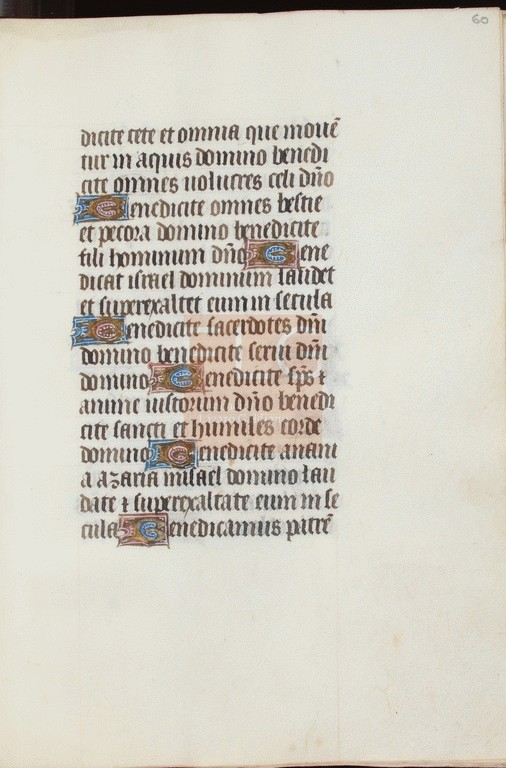 60
dicite cete et omnia que mouẽ
tur in aquis domino benedi
cite omnes uolucres celi dño
Benedicite omnes bestie
et pecora domino benedicite
filii hominum dño Bene
dicat israel dominum laudet
et superexaltet eum in secula
Benedicite sacerdotes dñi
domino benedicite serui dñi
domino Benedicite sp̃s ⁊
anime iustorum dño benedi
cite sancti et humiles corde
domino Benedicite anani
a azaria misael domino lau
date ⁊ superexaltate eum in se
cula Benedicamus patrẽ